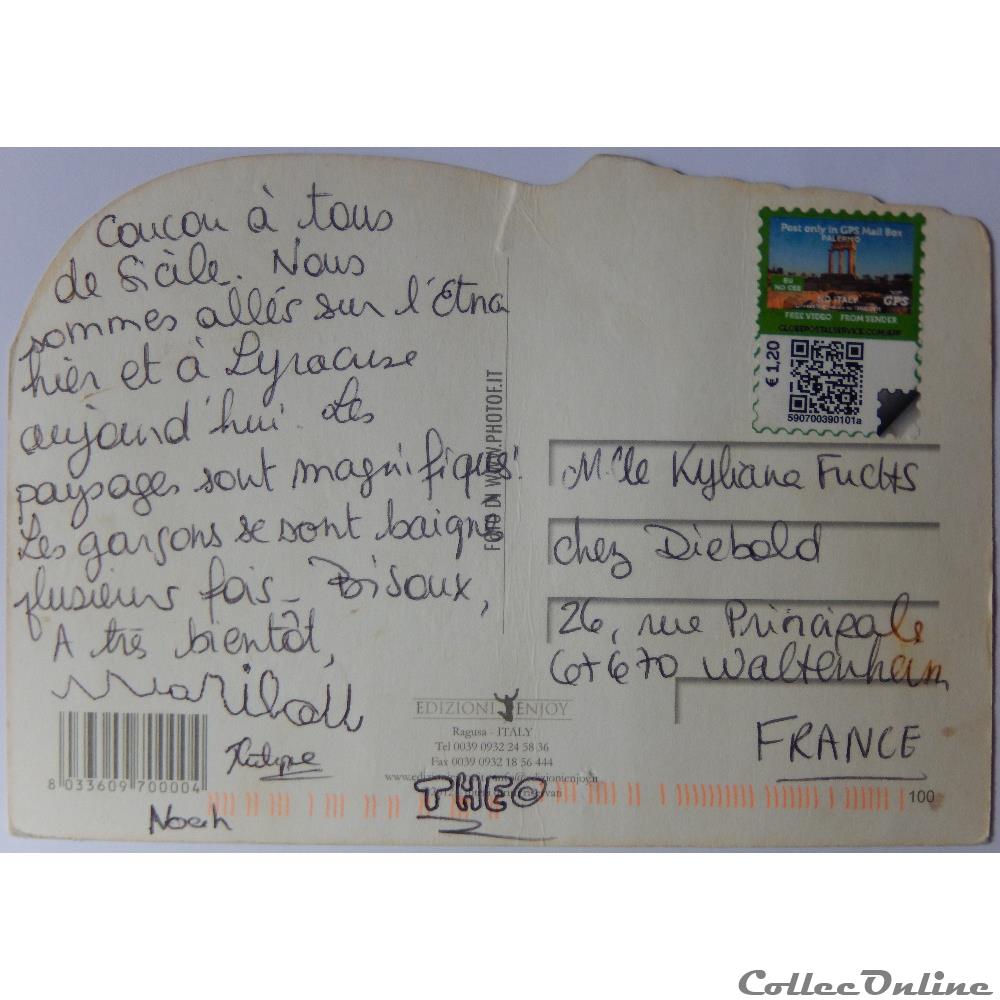 Coucou à tous
de Sicile. Nous
sommes allés sur l'Etna
hier et à Syracuse
aujourd'hui. Les
paysages sont magnifiques!
Les garçons se sont baignés
plusieurs fois_ Bisoux,
A très bientôt,
Philippe
Noah
THEO
8 033609 700004
FOTO DI WWW.PHOTOF.IT
EDIZIONI ENJOY
Ragusa - ITALY
Tel 0039 0932 24 58 36
Fax 0039 0932 18 56 444
Post only in GPS Mail Box
PALERMO
EU
NO CEE
NO ITALY
GPS
FREE VIDEO FROM SENDER
GLOBEPOSTALSERVICE.COM/APP
€ 1,20
590700390101a
Mlle Kyliana Fuchs
chez Diebold
26, rue Principale
67670 Waltenheim
FRANCE
100
CollecOnline